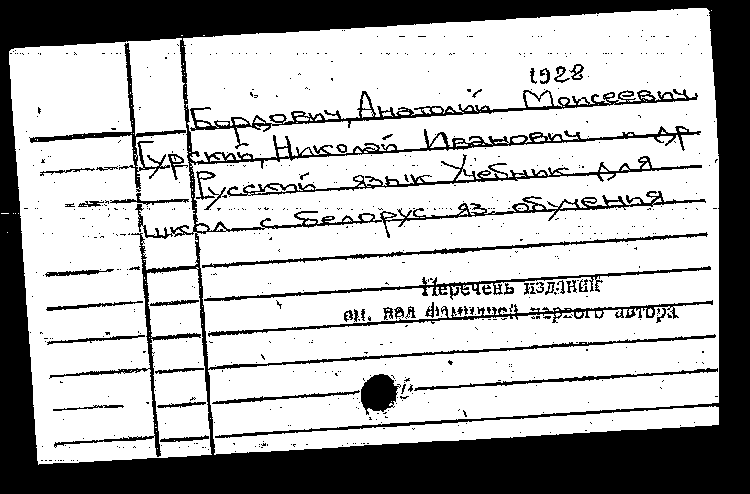 1928
Бордович, Анатолий Моисеевич,
Гурский, Николай Иванович и др
Русский язык Учебник для
школ с белорус. яз. обучения
Перечень изданий
см. под фамилией первого автора